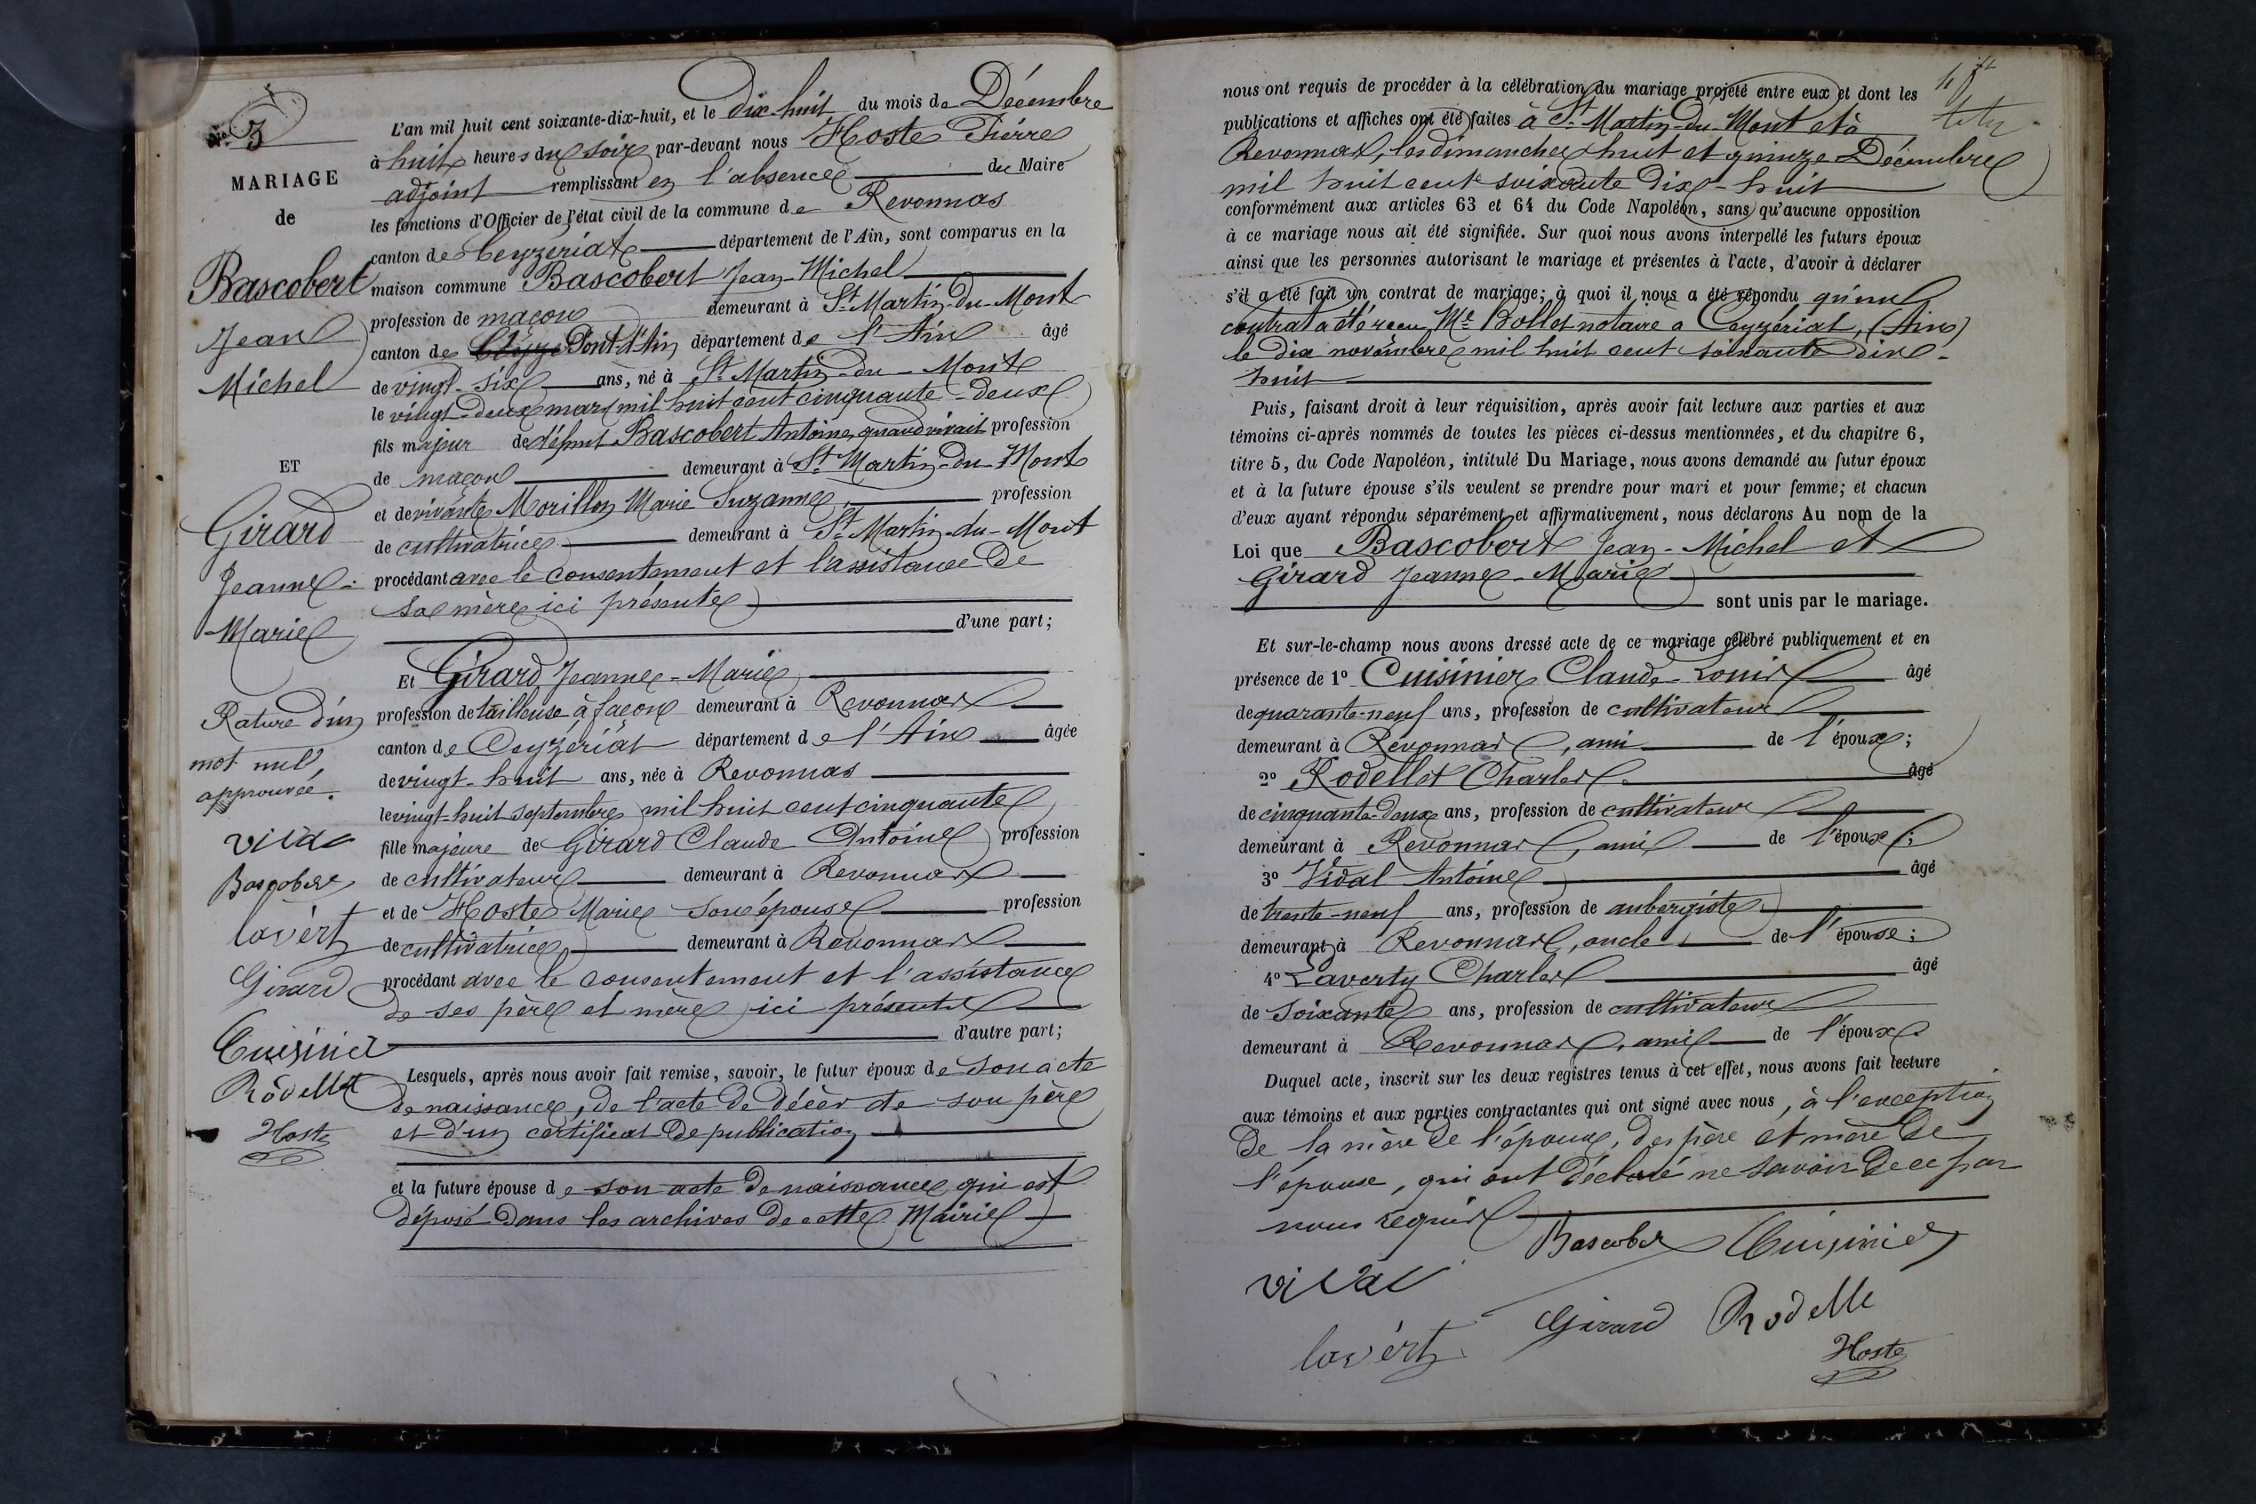 N° 3
MARIAGE
de
Bascobert
Jean
Michel
ET
Girard
Jeanne-
Marie
Rature d'un
mot nul
approuvée.
vidal
Bascobert
lavért
Girard
Cuisinier
Rodellet
Hoste
L'an mil huit cent soixante-dix-huit, et le dix huit du mois de Décembre
à huit heures du soir par-devant nous Hoste Pierre
adjoint remplissant en l'absence du Maire
les fonctions d'Officier de l'état civil de la commune de Revonnas
canton de Ceyzériat département de l'Ain, sont comparus en la
maison commune Bascobert Jean-Michel
profession de maçon demeurant à St Martin-du-Mont
canton de Ceyze Pont d'Ain département de l'Ain âgé
de vingt-six ans, né à St Martin-du-Mont
le vingt-deux mars mil huit cent cinquante-deux
fils majeur de défunt Bascobert Antoine, quand vivait profession
de maçon demeurant à St Martin-du-Mont
et de vivante Morillon Marie Suzanne profession
de cultivatrice demeurant à St Martin-du-Mont
procédant avec le consentement et l'assistance de
sa mère ici présente
d'une part;
Et Girard Jeanne-Marie
profession de tailleuse à façon demeurant à Revonnas
canton de Ceyzériat département de l'Ain âgée
de vingt-huit ans, née à Revonnas
le vingt-huit septembre mil huit cent cinquante
fille majeure de Girard Claude Antoine profession
de cultivateur demeurant à Revonnas
et de Hoste Marie son épouse profession
de cultivatrice demeurant à Revonnas
procédant avec le consentement et l'assistance
de ses père et mère ici présents
d'autre part;
Lesquels, après nous avoir fait remise, savoir, le futur époux de son acte
de naissance, de l'acte de décès de son père
et d'un certificat de publication
et la future épouse de son acte de naissance qui est
déposé dans les archives de cette Mairie
nous ont requis de procéder à la célébration du mariage projeté entre eux et dont les
publications et affiches ont été faites à St Martin-du-Mont et à
Revonnas, les dimanches huit et quinze Décembre
mil huit cent soixante dix-huit
conformément aux articles 63 et 64 du Code Napoléon, sans qu'aucune opposition
à ce mariage nous ait été signifiée. Sur quoi nous avons interpellé les futurs époux
ainsi que les personnes autorisant le mariage et présentes à l'acte, d'avoir à déclarer
s'il a été fait un contrat de mariage; à quoi il nous a été répondu qu'un
contrat a été reçu Me Bollet notaire à Ceyzériat, (Ain)
le dix novembre mil huit cent soixante dix-
huit
Puis, faisant droit à leur réquisition, après avoir fait lecture aux parties et aux
témoins ci-après nommés de toutes les pièces ci-dessus mentionnées, et du chapitre 6,
titre 5, du Code Napoléon, intitulé Du Mariage, nous avons demandé au futur époux
et à la future épouse s'ils veulent se prendre pour mari et pour femme; et chacun
d'eux ayant répondu séparément et affirmativement, nous déclarons Au nom de la
Loi que Bascobert Jean-Michel et
Girard Jeanne-Marie
sont unis par le mariage.
Et sur-le-champ nous avons dressé acte de ce mariage célébré publiquement et en
présence de 1° Cuisinier Claude-Louis âgé
de quarante-neuf ans, profession de cultivateur
demeurant à Revonnas, ami de l'époux;
2° Rodellet Charles âgé
de cinquante-deux ans, profession de cultivateur
demeurant à Revonnas, ami de l'époux;
3° Vidal Antoine âgé
de trente-neuf ans, profession de aubergiste
demeurant à Revonnas, oncle de l'épouse;
4° Laverty Charles âgé
de soixante ans, profession de cultivateur
demeurant à Revonnas, ami de l'époux
Duquel acte, inscrit sur les deux registres tenus à cet effet, nous avons fait lecture
aux témoins et aux parties contractantes qui ont signé avec nous, à l'exception
de la mère de l'époux, des père et mère de
l'épouse, qui ont déclaré ne savoir de ce par
nous requis
Bascober Cuisinier
vidal
Girard Rodelle
lavért
Hoste